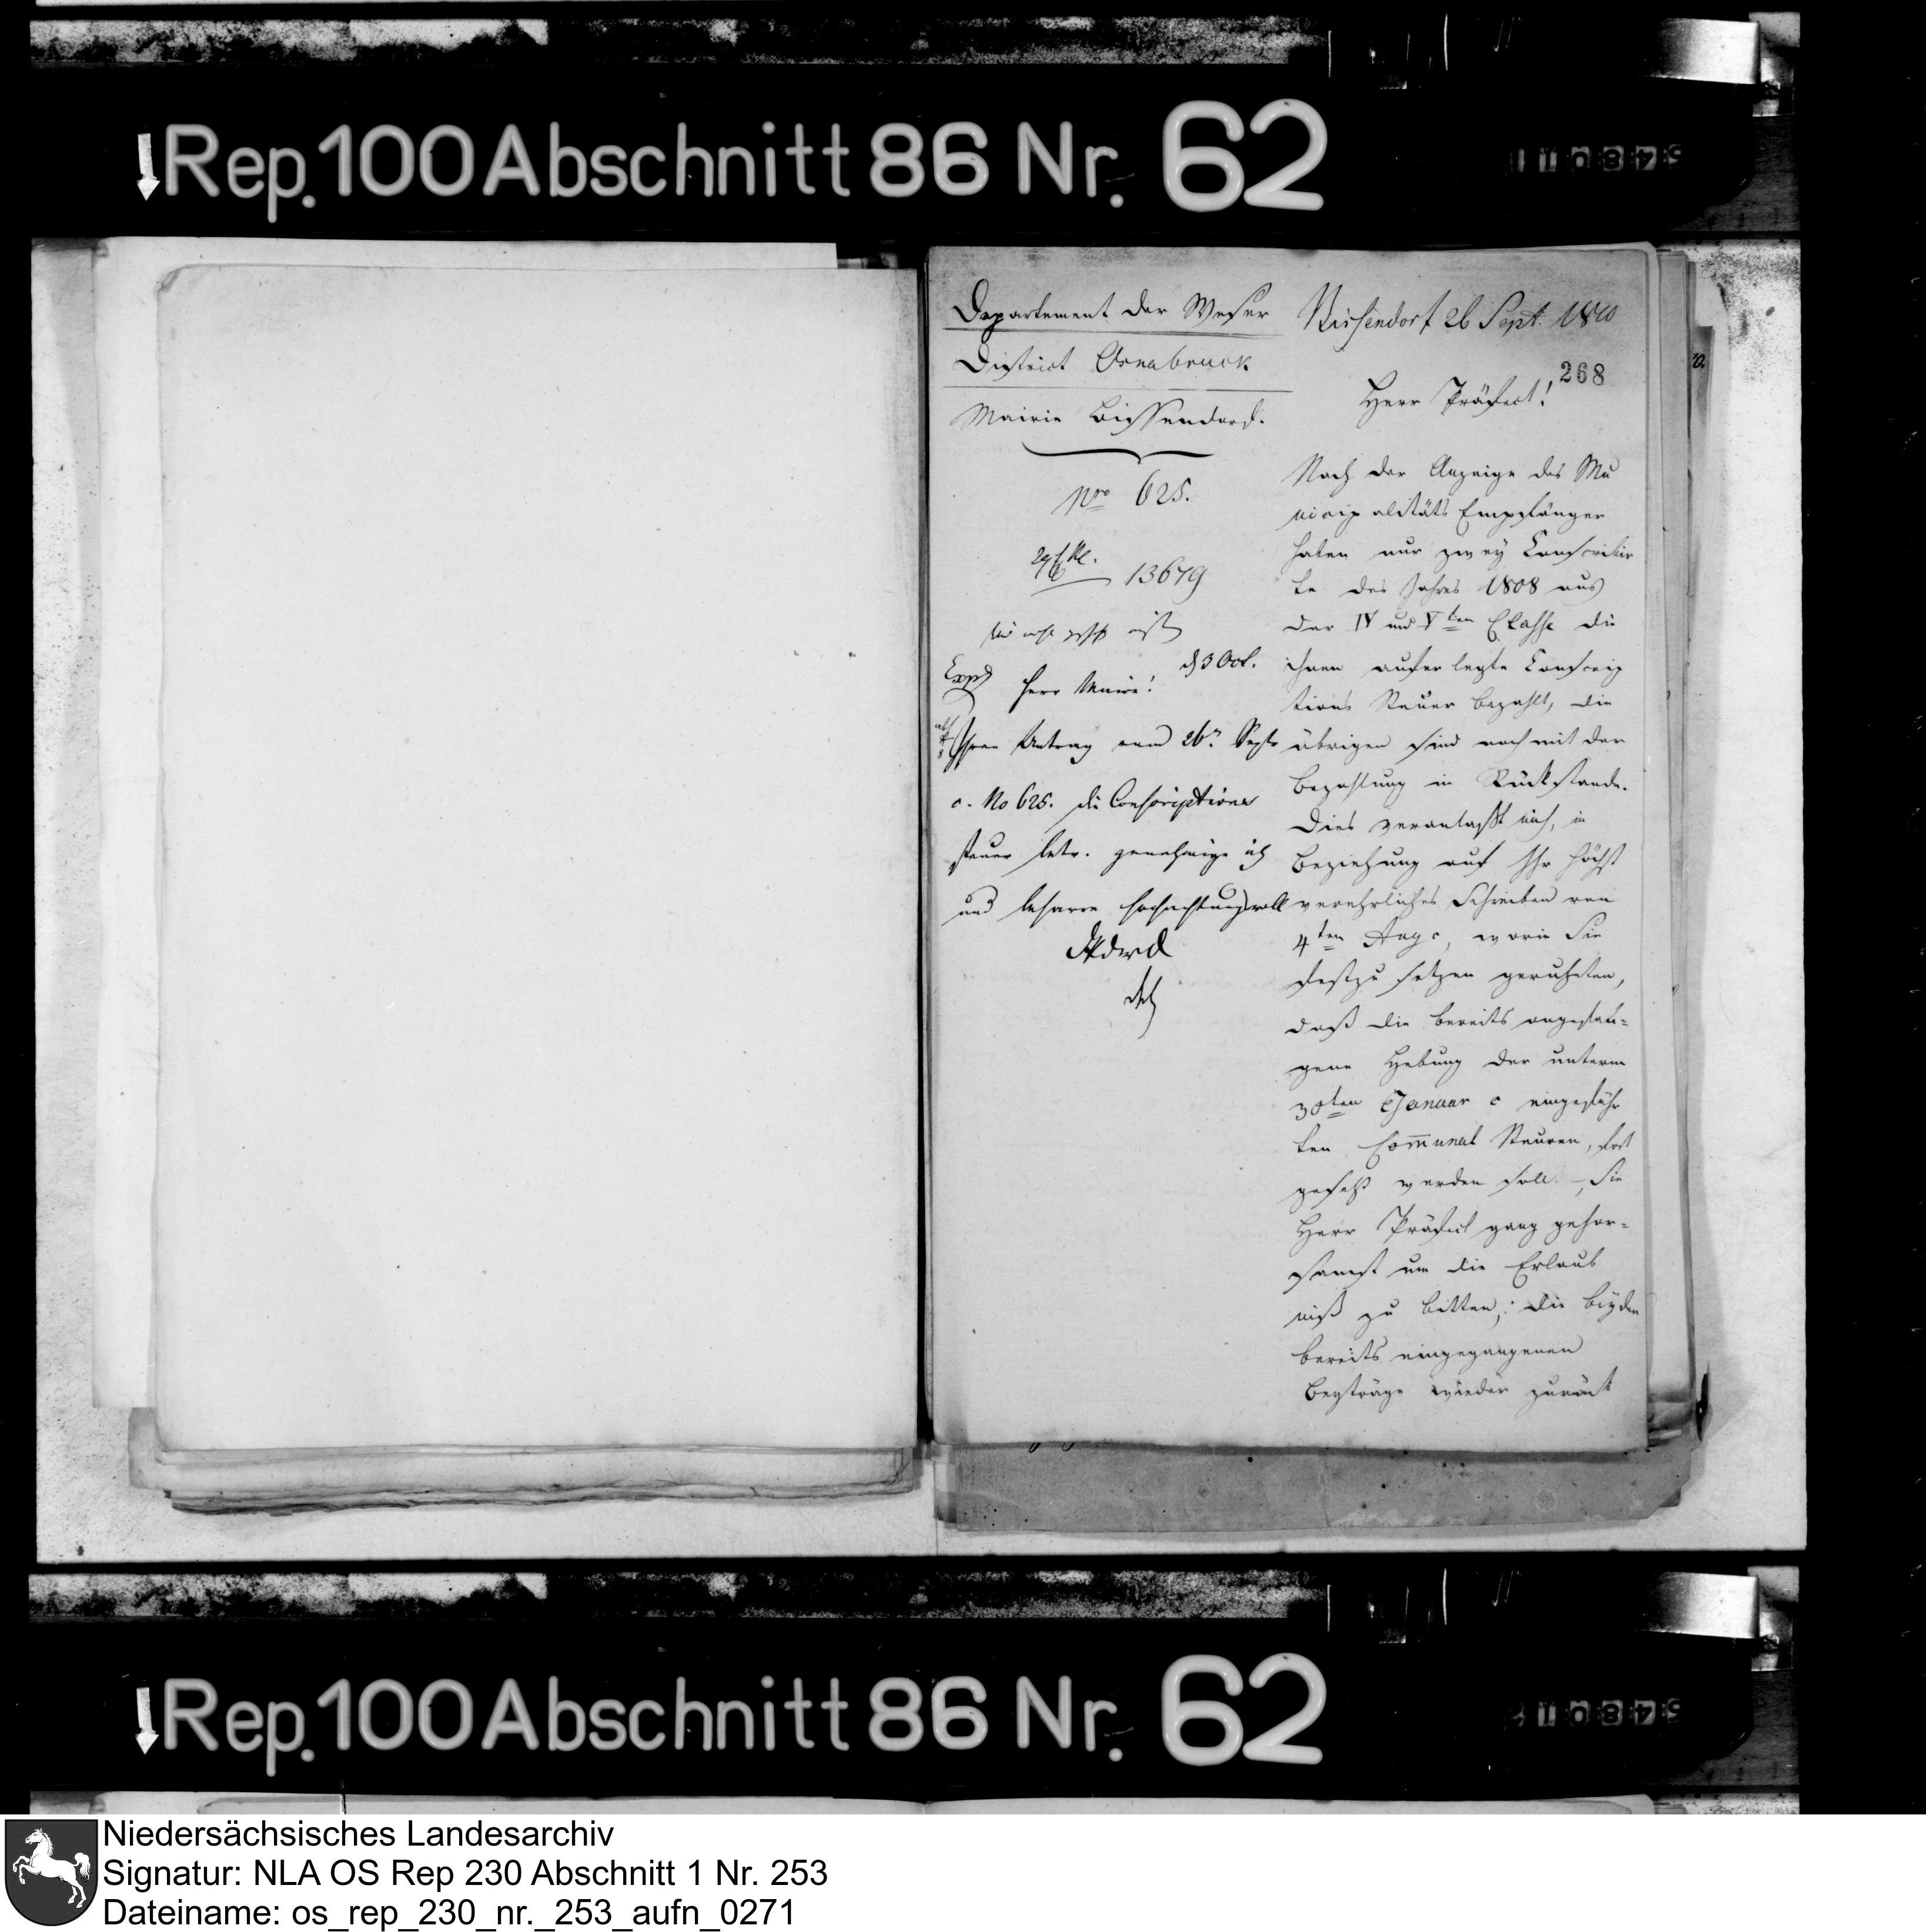 Rep. 100 Abschnitt 86 Nr. 62
Departement der Weser
District Osnabruck
Mairie Bissendorf.
Nro 625.
13679
d 3 Oct.
Exp
Herr Maire!
Ihren Antrag vom 26n Sept
c. No 625. die Conscriptions
steuer betr. genehmige ich
und beharre hochachtungsvoll
Bissendorf 26 Sept. 1810
268
Herr Präfect!
Nach der Anzeige des Mu
nicipalitäts Empfänger
haben nur zwey Conscribir
te des Jahres 1808 aus
der IV und Vten Classe die
ihnen auferlegte Conscrip
tions Steuer bezahlt, die
übrigen sind noch mit der
Bezahlung in Rückstande.
Dies veranlaßt mich, in
Beziehung auf Ihr höchst
verehrliches Schreiben vom
4ten Aug c, worin Sie
festzu setzen geruheten,
daß die bereits angefan-
gene Hebung der unterm
30ten Januar c eingeführ
ten Communal Steuren, fort
gesetzt werden soll. – Sie
Herr Präfect ganz gehor-
samst um die Erlaub
niß zu bitten,: die beyden
bereits eingegangenen
Beyträge wieder zurück
Rep. 100 Abschnitt 86 Nr. 62
Niedersächsisches Landesarchiv
Signatur: NLA OS Rep 230 Abschnitt 1 Nr. 253
Dateiname: os_rep_230_nr._253_aufn_0271